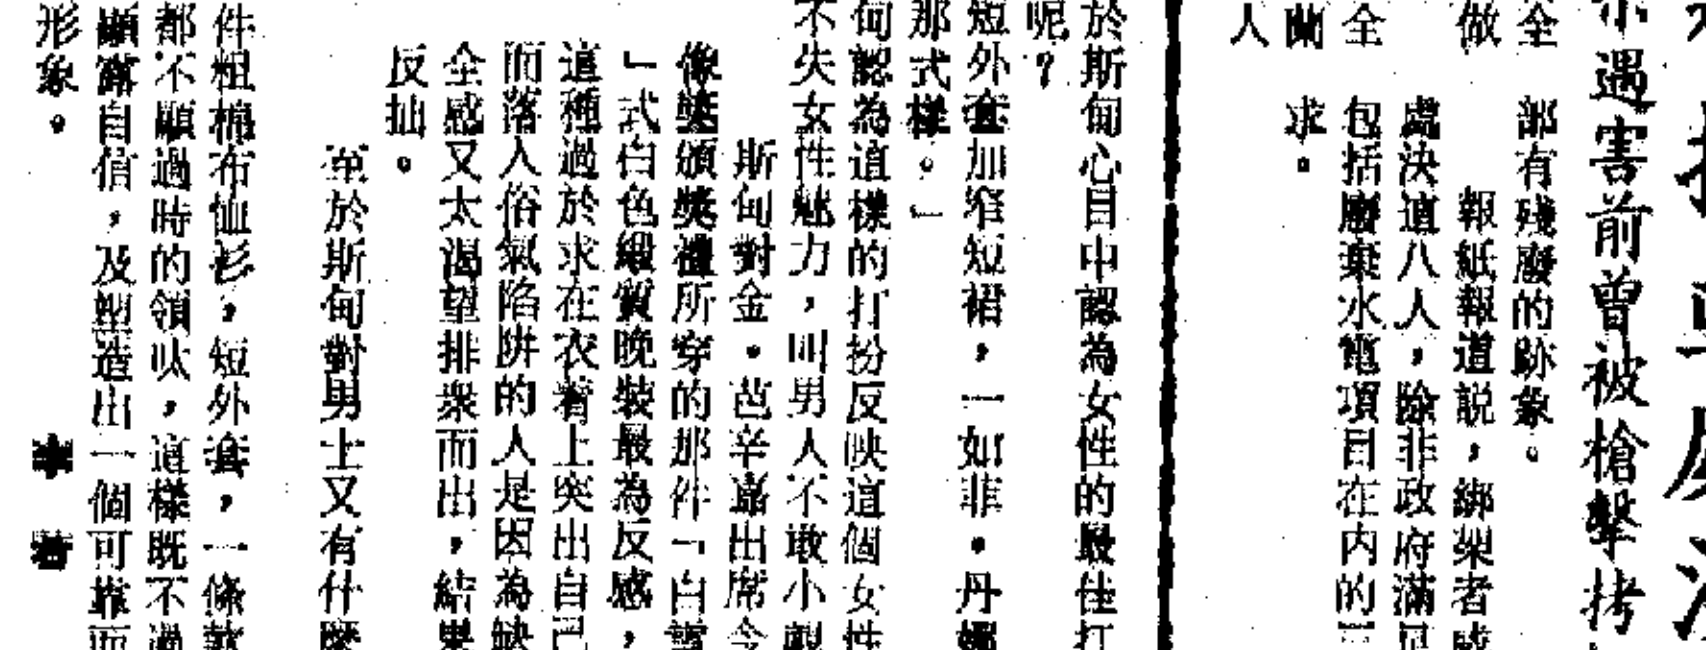 示遇害前曾被槍擊拷
全 部有殘廢的跡象。
做 報紙報道説，綁架者
處決這八人，除非政府滿足
全 包括廢棄水電項目在内的
蘭 求。
人
於斯甸心目中認為女性的最佳打
呢？
短外套加窄短裙，一如菲·丹娜
那式樣。」
甸認為這樣的打扮反映這個女性
不失女性魅力，叫男人不敢小覷
斯甸對金·芭辛嘉出席今
像獎頒獎禮所穿的那件「白雪
」式白色緞質晚裝最為反感，
這種過於求在衣着上突出自己
而落入俗氣陷阱的人是因為缺
全感又太渴望排衆而出，結果
反抽。
至於斯甸對男士又有什麼
件粗棉布恤衫，短外套，一條款
都不顯過時的領呔，這樣既不過
顯露自信，及塑造出一個可靠而
形象。